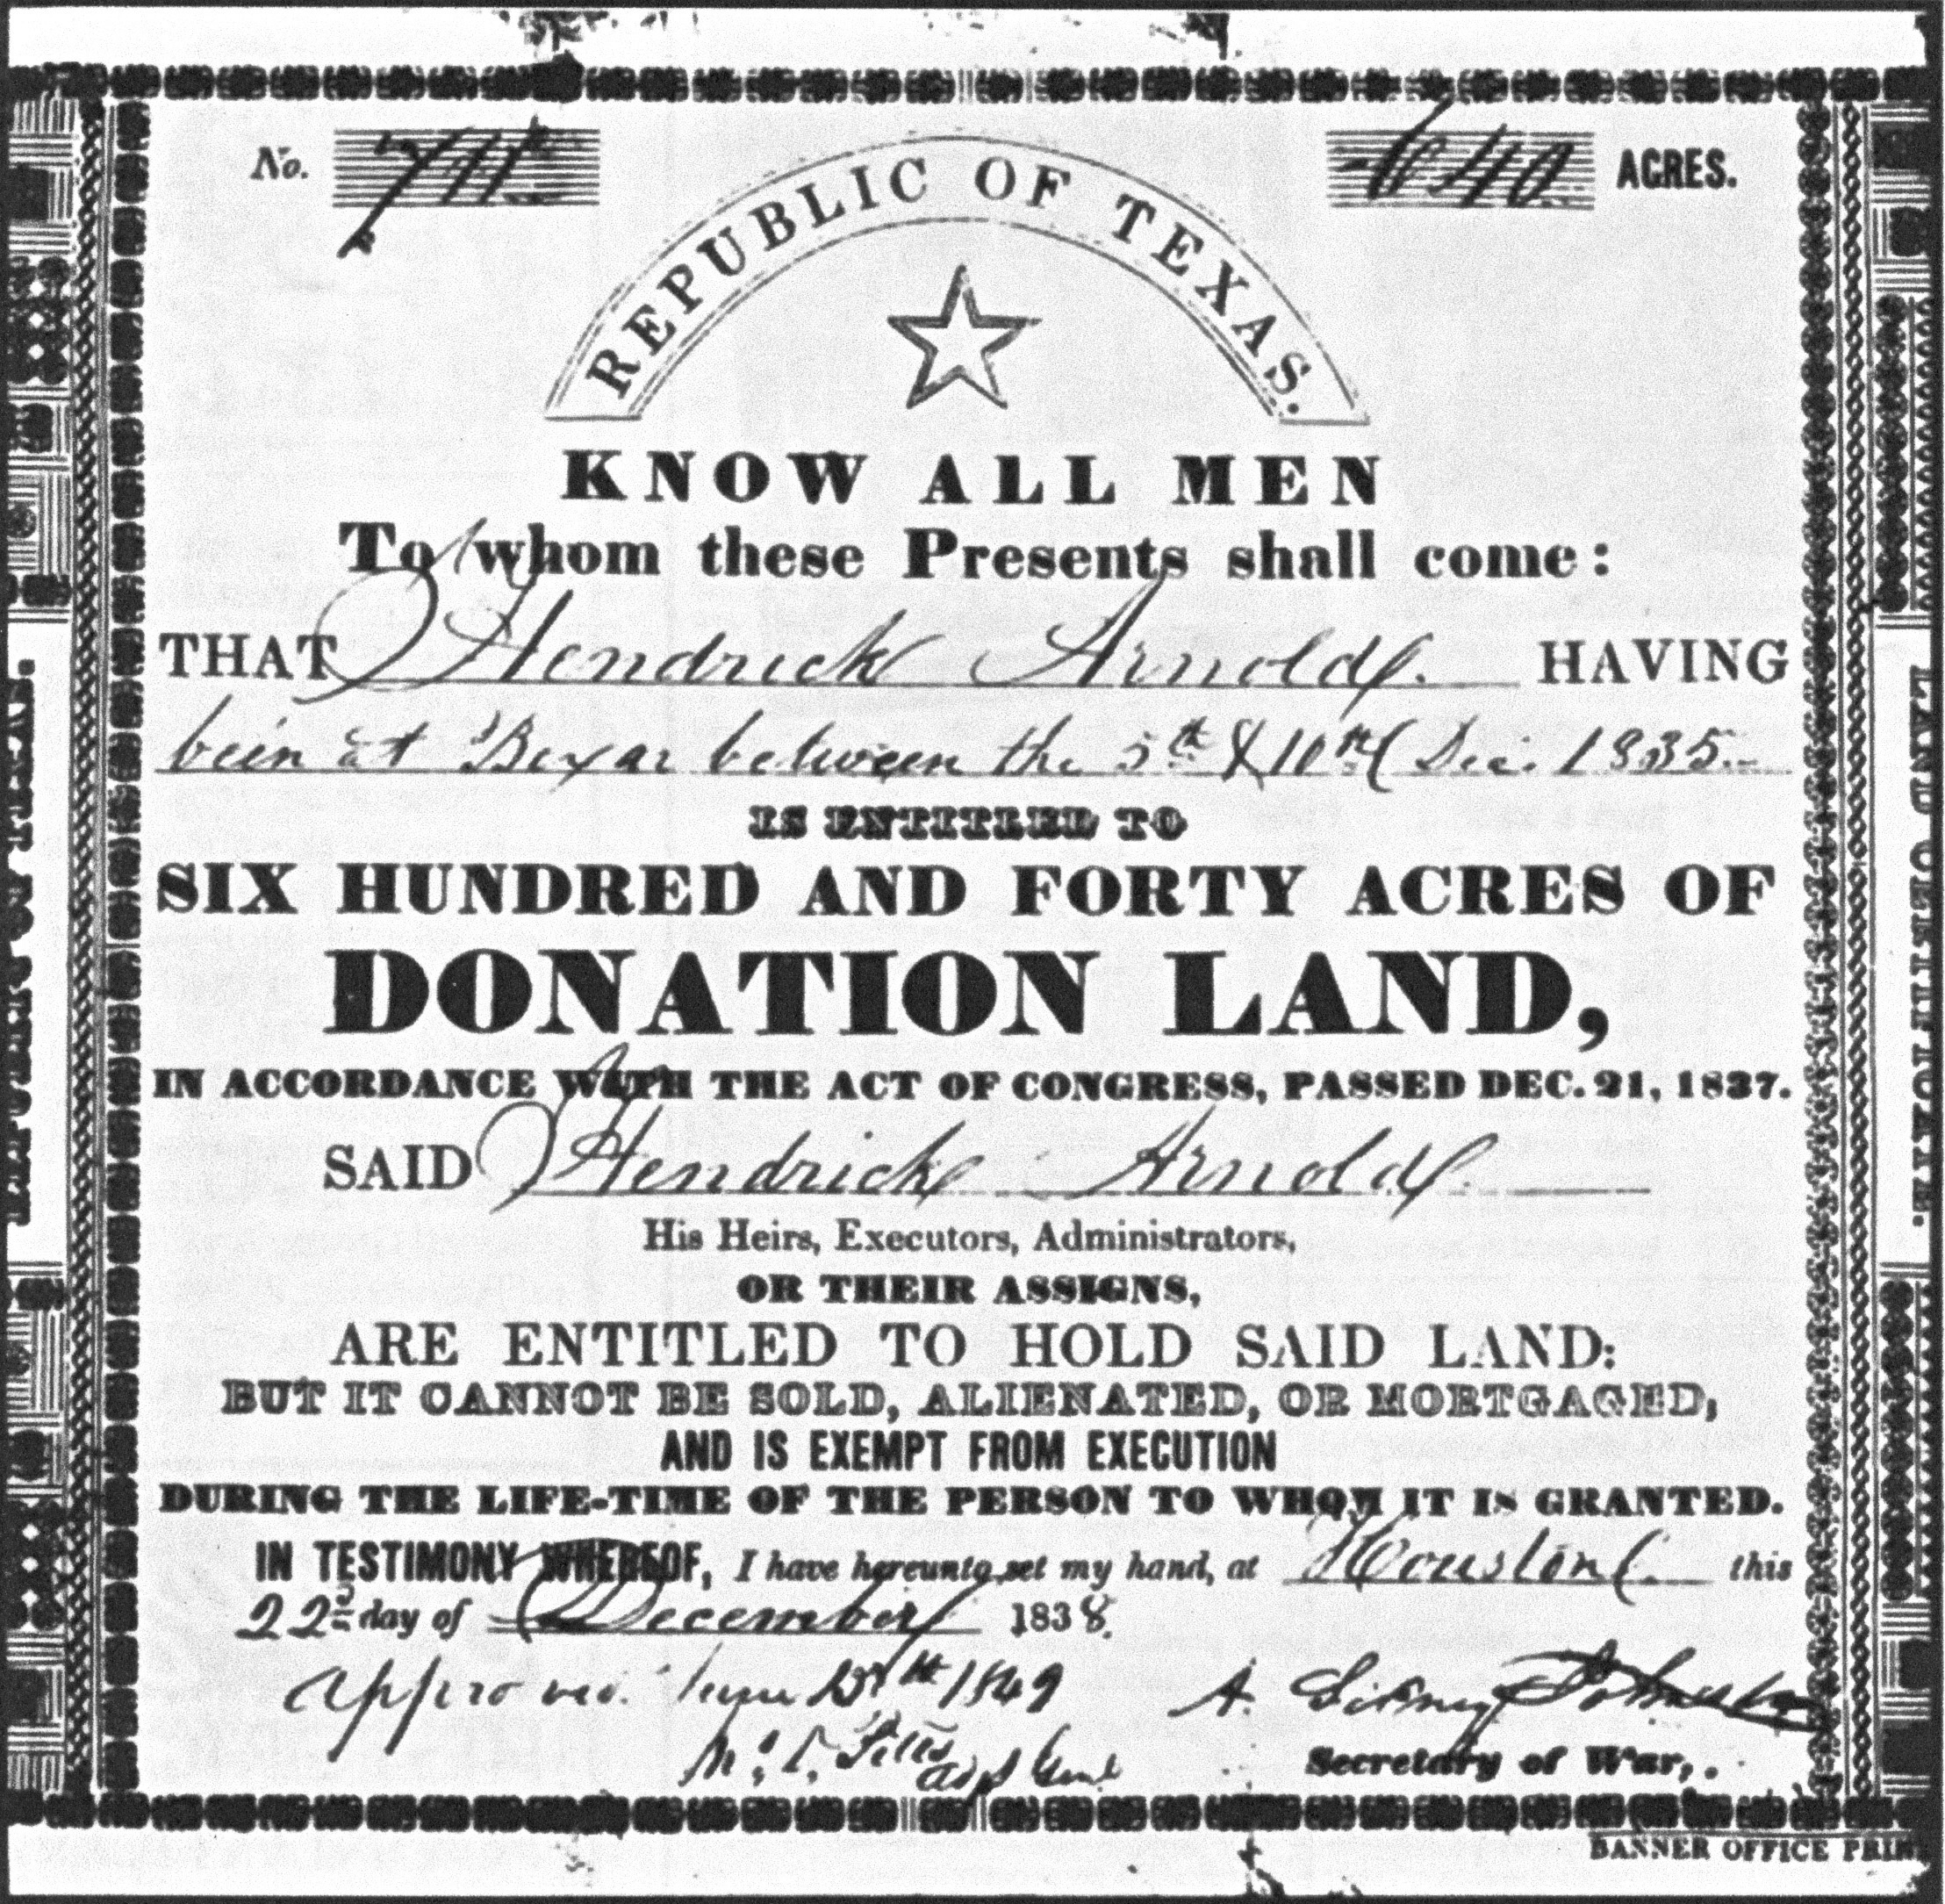 No.
640 ACRES.
REPUBLIC OF TEXAS.
KNOW ALL MEN
To whom these Presents shall come:
THAT Hendrick Arnold. HAVING
been at Bexar between the 5th & 10th Dec. 1835
IS ENTITLED TO
SIX HUNDRED AND FORTY ACRES OF
DONATION LAND,
IN ACCORDANCE WITH THE ACT OF CONGRESS, PASSED DEC. 21, 1837.
SAID Hendrick Arnold.
His Heirs, Executors, Administrators,
OR THEIR ASSIGNS,
ARE ENTITLED TO HOLD SAID LAND:
BUT IT CANNOT BE SOLD, ALIENATED, OR MORTGAGED,
AND IS EXEMPT FROM EXECUTION
DURING THE LIFE-TIME OF THE PERSON TO WHOM IT IS GRANTED.
IN TESTIMONY WHEREOF, I have hereunto set my hand, at Houston this
22d day of December 1838.
Approved. 1849
A. Sidney Johnston
Secretary of War,.
BANNER OFFICE